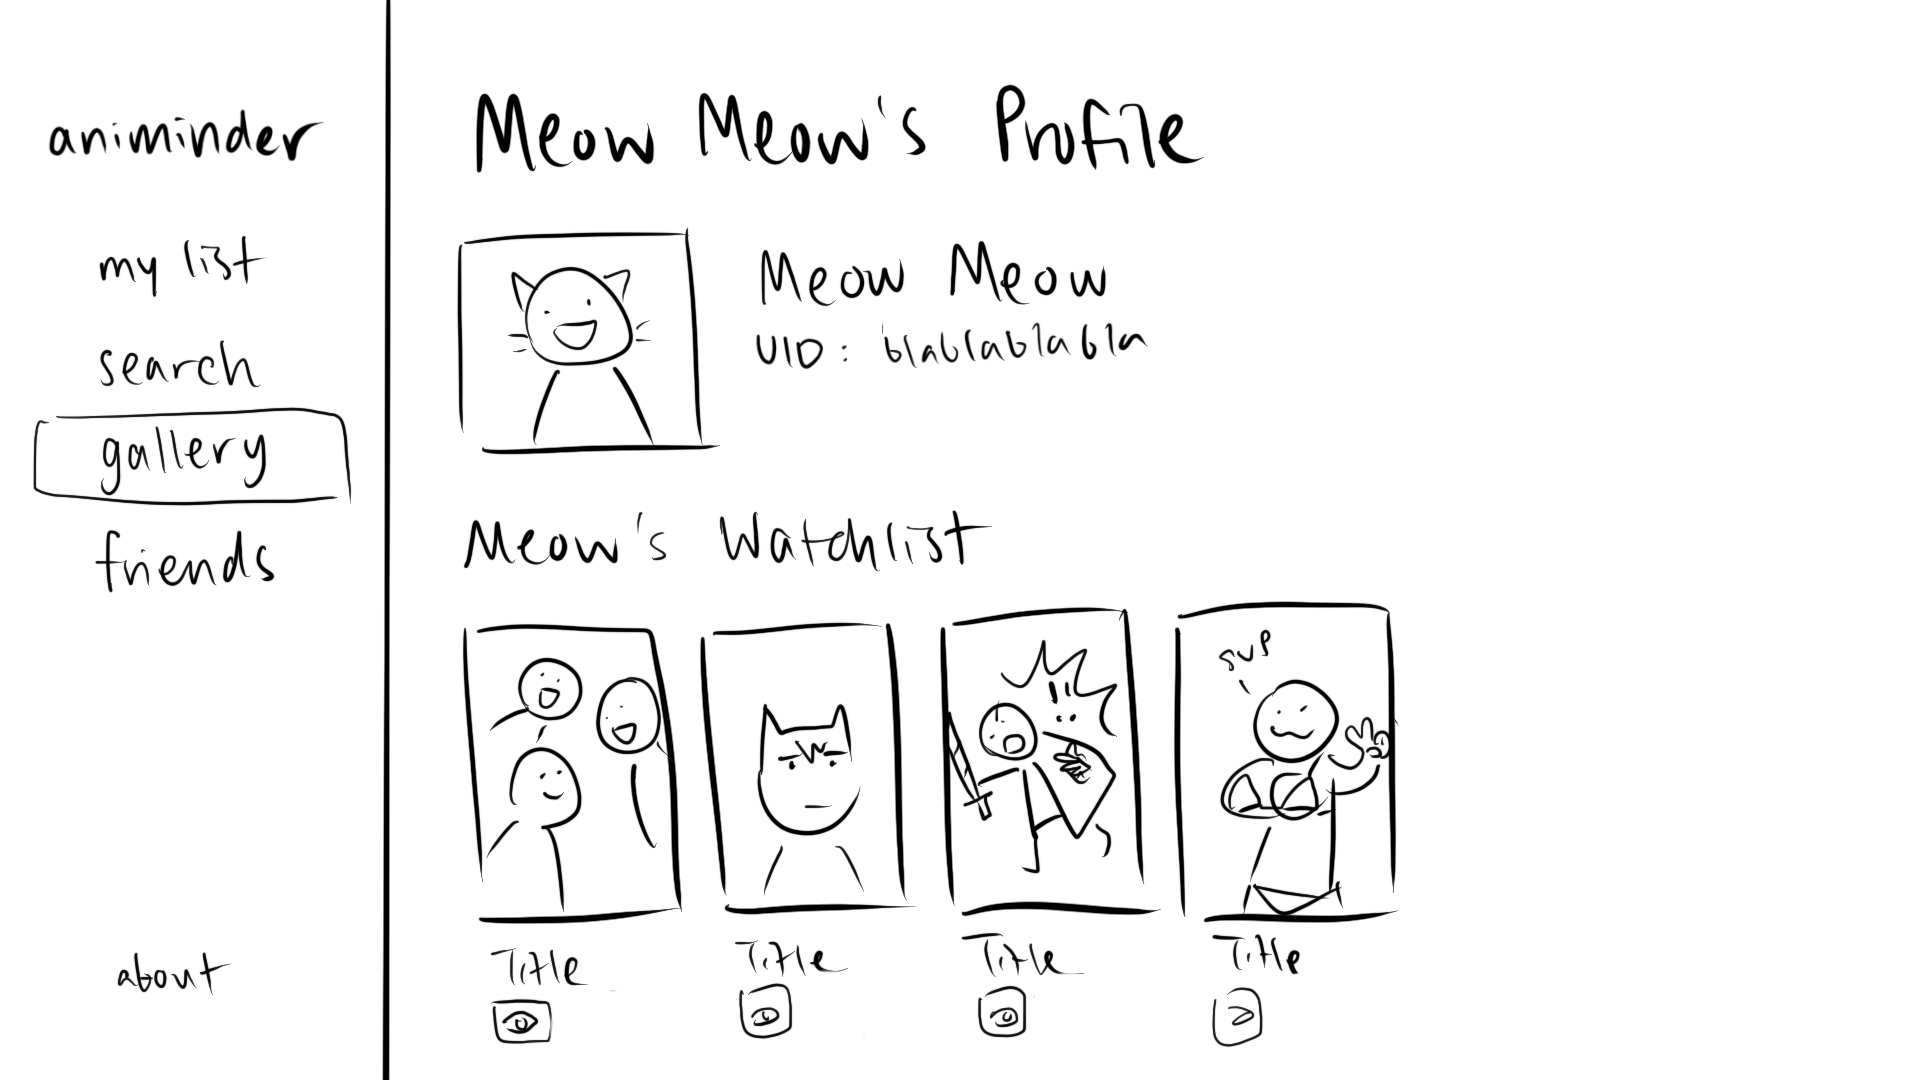 animinder
my list
search
gallery
friends
about
Meow Meow's Profile
Meow Meow
UID: blablablabla
Meow's Watchlist
!!
sup
Title
Title
Title
Title